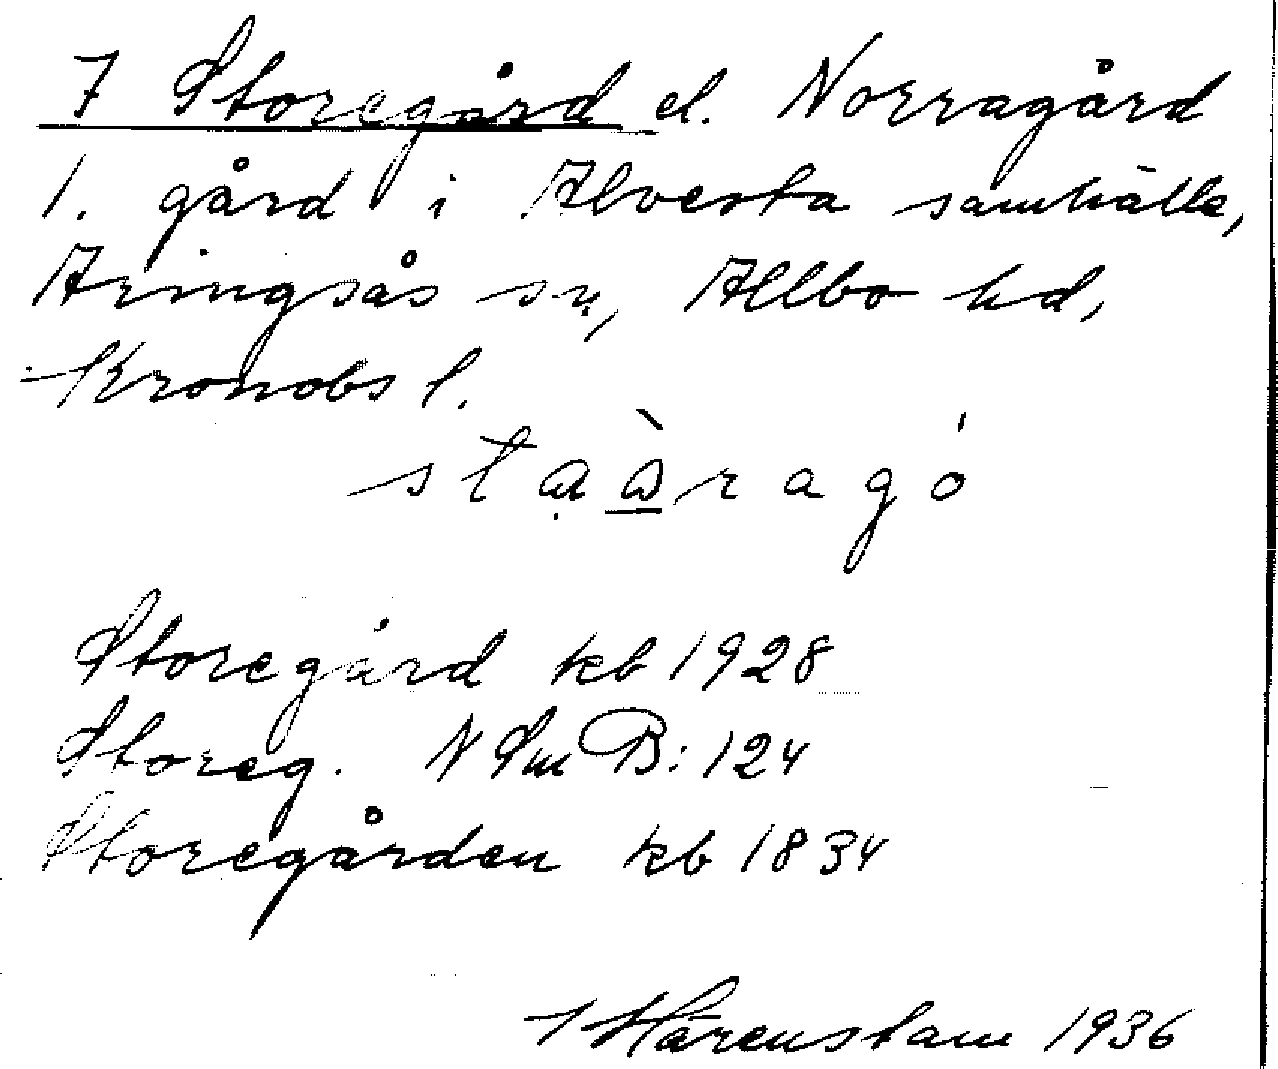 7 Storegård el. Norragård
1. gård i Alvesta samhälle,
Aringsås sn, Allbo hd,
Kronobs l.
Storegård kb 1928
Storeg. N Sm B: 124
Storegården kb 1834
Härenstam 1936